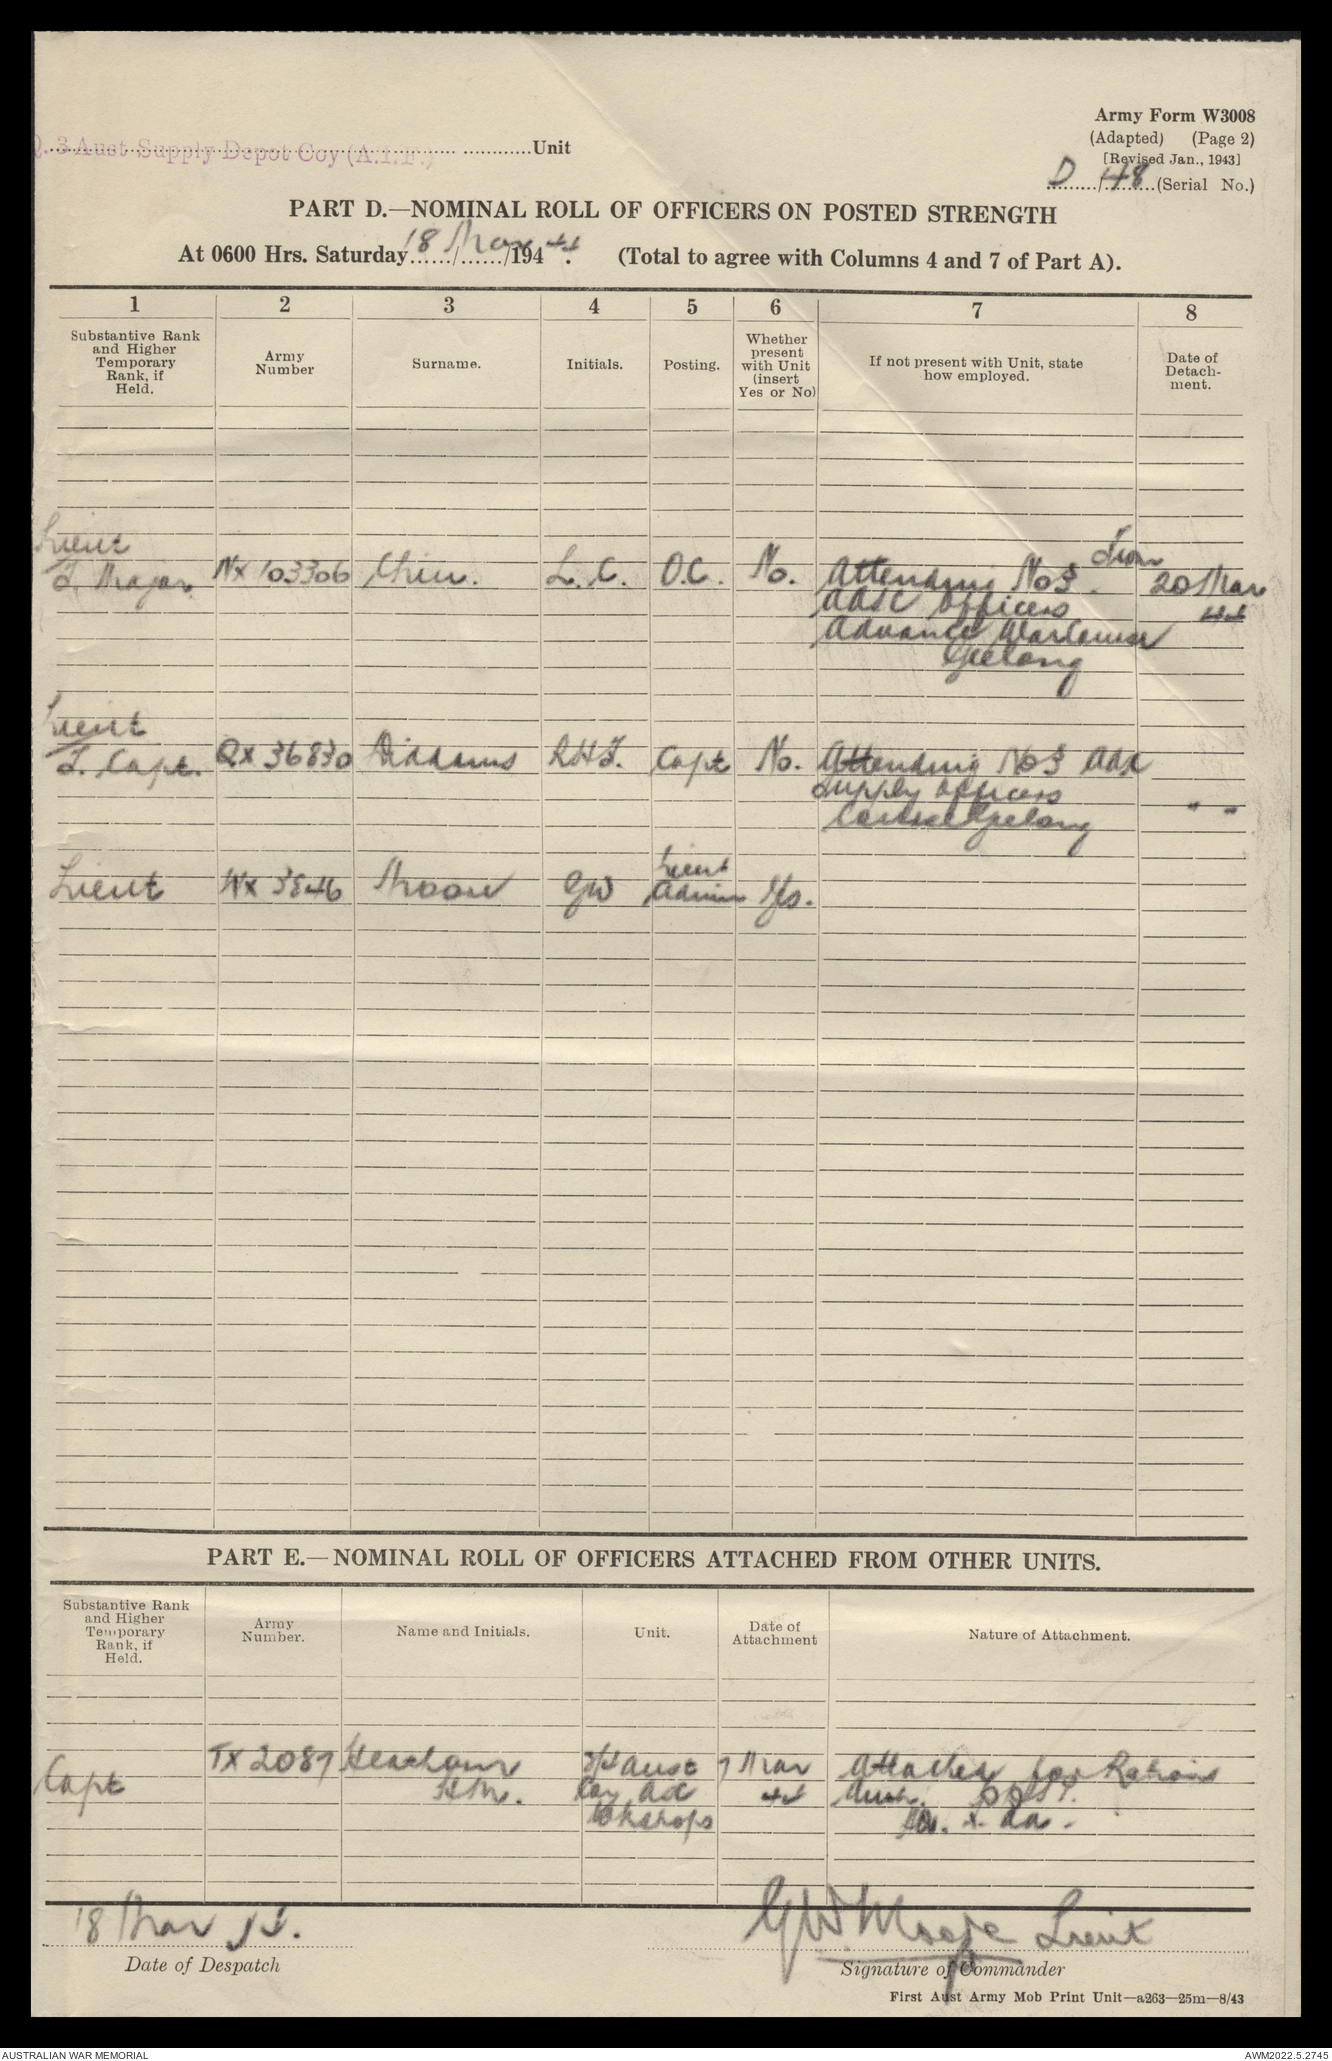 Army Form W3008
(Adapted) (Page 2)
[Revised Jan., 1943]
Q. 3 Aust Supply Depot Coy (A.I.F.) Unit
D/48 (Serial No.)
PART D.—NOMINAL ROLL OF OFFICERS ON POSTED STRENGTH
At 0600 Hrs. Saturday 18/Mar/1944. (Total to agree with Columns 4 and 7 of Part A).
1 2 3 4 5 6 7 8
Substantive Rank and Higher Temporary Rank, if Held.
Army Number
Surname.
Initials.
Posting.
Whether present with Unit (insert Yes or No)
If not present with Unit, state how employed.
Date of Detachment.
Lieut
T. Major NX 103306 L. C. O.C. No. Attending No 3 from 20 Mar
AASC Officers 44
Advance
Geelong
Lieut
T. Capt. QX 36830 Diddams RHT. Capt No. Attending No 3 AASC
Supply Officers
Course Geelong " "
Lieut
Lieut NX 3846 Moore GW Admin Yes.
PART E.—NOMINAL ROLL OF OFFICERS ATTACHED FROM OTHER UNITS.
Substantive Rank and Higher Temporary Rank, if Held.
Army Number.
Name and Initials.
Unit.
Date of Attachment
Nature of Attachment.
TX 2087 Aust 7 Mar Attached for Rations
Capt H.M. 44
Wkshops
18 Mar 44. GW Moore Lieut
Date of Despatch Signature of Commander
First Aust Army Mob Print Unit—a263—25m—8/43
AUSTRALIAN WAR MEMORIAL AWM2022.5.2745